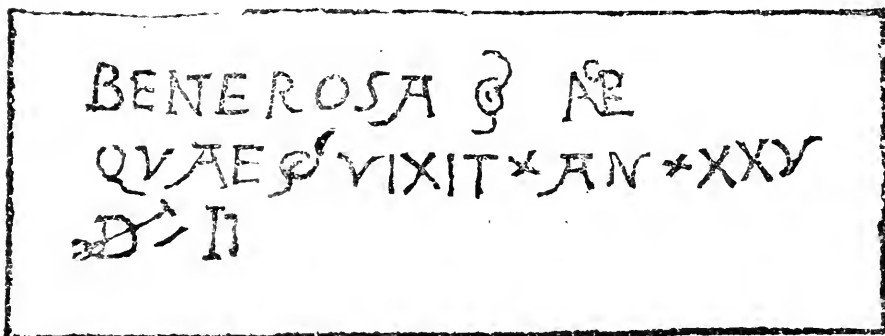 BENEROSA
QVAE VIXIT × AN × XXV
D II